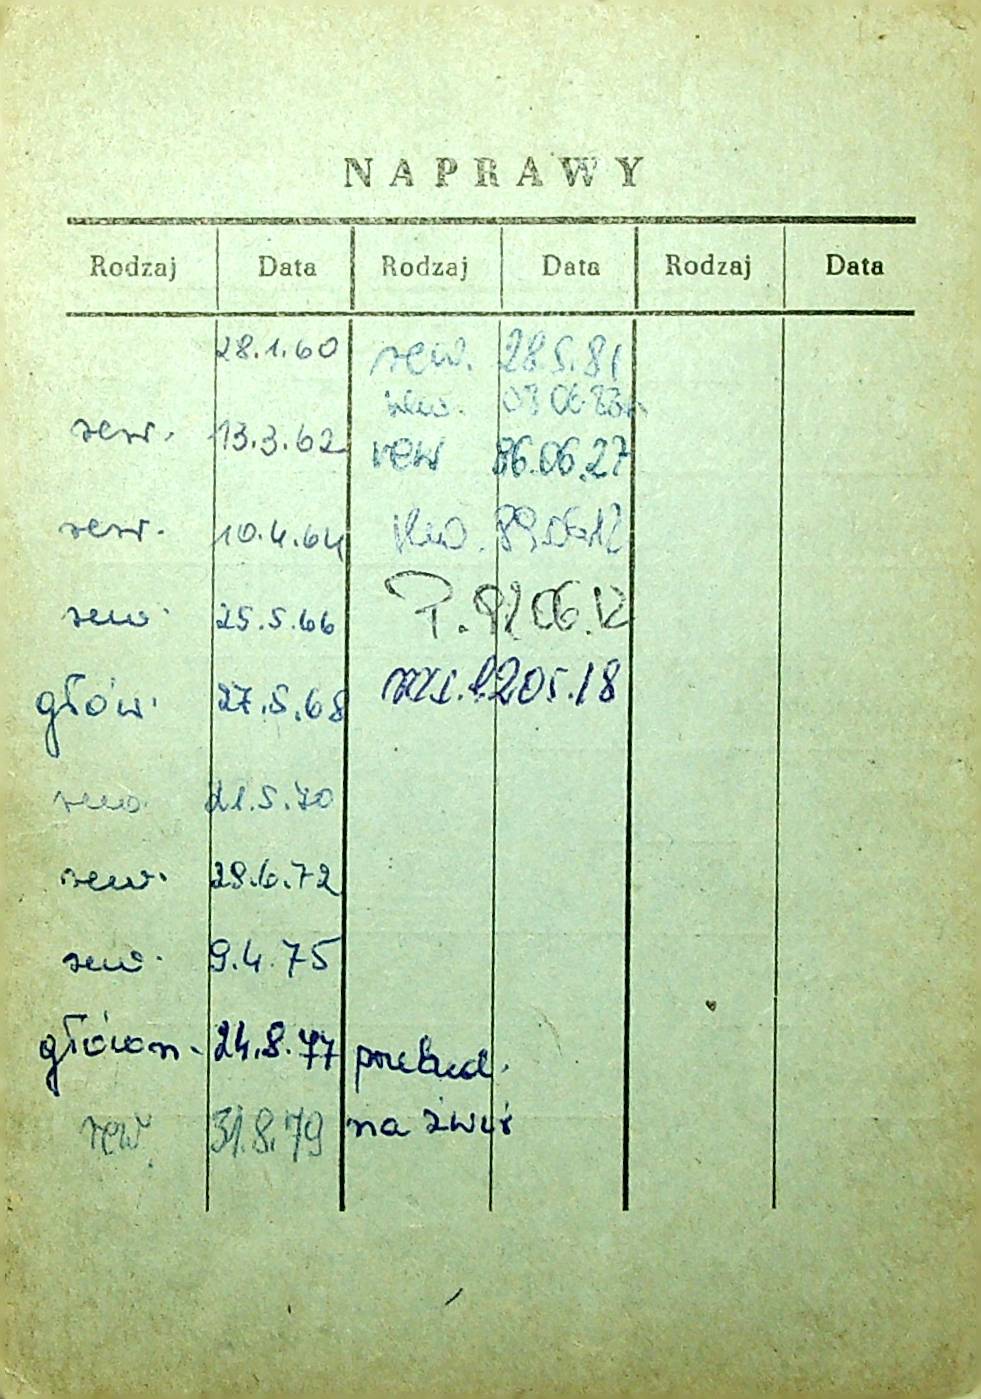 NAPRAWY
Rodzaj Data Rodzaj Data Rodzaj Data
28.1.60 rew. 28.5.81
rew. 03 06 83
rew. 13.3.62 rew 86.06.27
rew. 10.4.64 rew. 89.06.12
rew. 25.5.66 P. 92 06.12
głów. 27.5.68 05.18
rew. 21.5.70
rew. 28.6.72
rew. 9.4.75
główn. 24.8.77 przebud.
rew. 31.8.79 na żwir